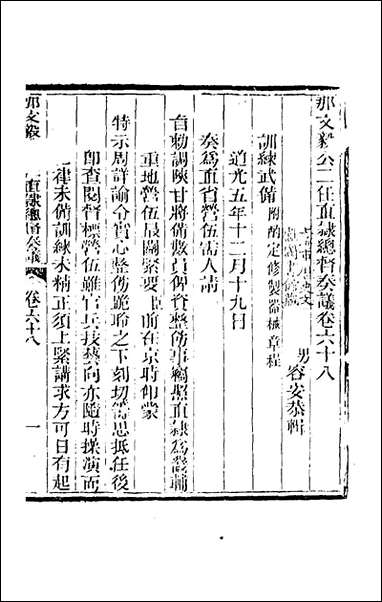 那文毅公二任直隸總督奏議卷六十八
男 容安恭輯
訓練武備 附酌定修製器械章程
道光五年十二月十九日
奏為直省營伍需人請
旨勅調陝甘將備數員俾資整飭事竊照直隸為畿輔
重地營伍最關緊要 前在京時仰蒙
特示周詳諭令實心整飭跪聆之下刻切 思抵任後
即查閱督標營伍雖官兵技藝向亦隨時操演而
一律未備訓練未精正須上緊講求方可日有起
那文毅 二任直隸總督奏議 卷六十八 一